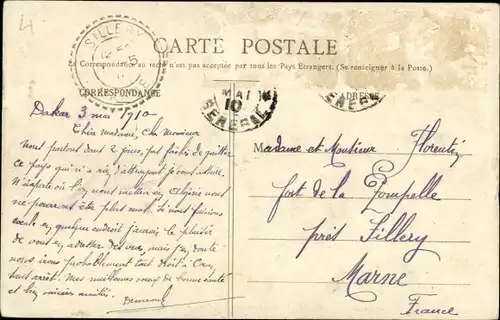 CARTE POSTALE
La Correspondance au recto n'est pas acceptée par tous les Pays Étrangers. (Se renseigner à la Poste.)
SILLERY
CORRESPONDANCE
MAI
10
ADRESSE
Dakar 3 mai 1910
Chère madame, Cher Monsieur
Nous partons dans 2 jours, pas fâchés de quitter
ce pays qui n'a rien d'attrayant je vous assure.
N'importe où l'on nous mettra en Algérie nous
ne pourrons être plus mal. Si nous faisions
escale en quelque endroit j'aurais le plaisir
de vous en adresser des vues, mais j'en doute
nous irons probablement tout droit à Oran
sans arrêt. Mes meilleurs vœux de bonne santé
et bien sincères amitiés.
Madame et Monsieur Florentin
fort de la Pompelle
près Sillery
Marne
France